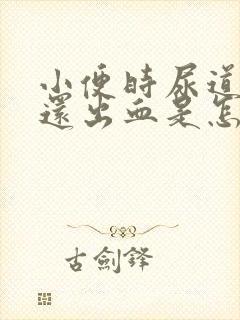 小便时尿道
還出血是怎
古劍鋒